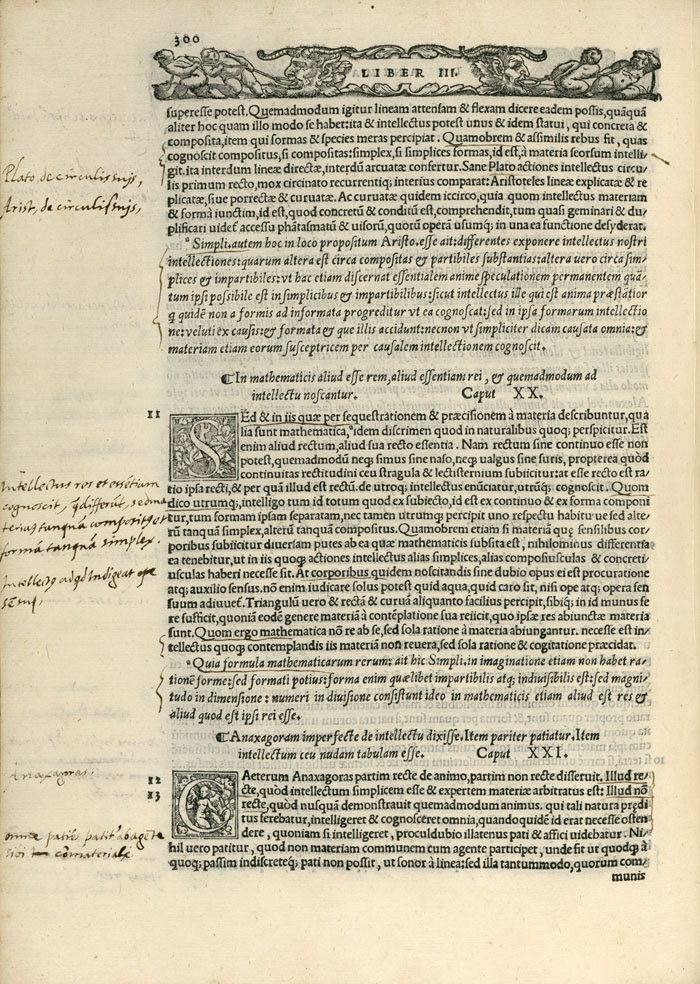 300
LIBER III.
superesse potest. Quemadmodum igitur lineam attensam & flexam dicere eadem possis, quãquã
aliter hoc quam illo modo se habet: ita & intellectus potest unus & idem statui, qui concreta &
composita, item qui formas & species meras percipiat. Quamobrem & assimilis rebus fit, quas
cognoscit compositus, si compositas: simplex, si simplices formas, id est, à materia seorsum intelli-
git. ita interdum lineæ directæ, interdũ arcuatæ confertur. Sane Plato actiones intellectus circu-
lis primum recto, mox circinato recurrentiq; interius comparat: Aristoteles lineæ explicatæ & re
plicatæ, siue porrectæ & curuatæ. Ac curuatæ quidem iccirco, quia quom intellectus materiam
& formã iunctim, id est, quod concretũ & conditũ est, comprehendit, tum quasi geminari & du-
plificari uidet̃ accessu phãtasmatũ & uisorũ, quorũ operá usumq; in una ea functione desyderat.
Simpli. autem hoc in loco propositum Aristo. esse ait: differentes exponere intellectus nostri
intellectiones: quarum altera est circa compositas & partibiles substantias: altera uero circa sim-
plices & impartibiles: vt hac etiam discernat essentialem animæ speculationem permanentem quã-
tum ipsi possibile est in simplicibus & impartibilibus: sicut intellectus ille qui est anima præstãtior
q quidẽ non a formis ad informata progreditur vt ea cognoscat: sed in ipsa formarum intellectio
ne: veluti ex causis: & formata & que illis accidunt: necnon vt simpliciter dicam causata omnia: &
materiam etiam eorum susceptricem per causalem intellectionem cognoscit.
¶In mathematicis aliud esse rem, aliud essentiam rei, & quemadmodum ad
intellectu noscantur. Caput XX.
11
SEd & in iis quæ per sequestrationem & præcisionem à materia describuntur, qua
lia sunt mathematica, idem discrimen quod in naturalibus quoq; perspicitur. Est
enim aliud rectum, aliud sua recto essentia. Nam rectum sine continuo esse non
potest, quemadmodũ neq; simus sine naso, neq; ualgus sine suris, propterea quòd
continuitas rectitudini ceu stragula & lectisternium subiicitur: at esse recto est ra
tio ipsa recti, & per quã illud est rectũ. de utroq; intellectus enũciatur, utrũq; cognoscit. Quom
dico utrumq; intelligo tum id totum quod ex subiecto, id est ex continuo & ex forma componi
tur, tum formam ipsam separatam, nec tamen utrumq; percipit uno respectu habitu ue sed alte-
rũ tanquã simplex, alterũ tanquã compositus. Quamobrem etiam si materiã quę sensilibus cor
poribus subiicitur diuersam putes ab ea quæ mathematicis subsita est, nihilominus differentia
ea tenebitur, ut in iis quoq; actiones intellectus alias simplices, alias composiusculas & concreti-
usculas haberi necesse sit. At corporibus quidem noscitandis sine dubio opus ei est procuratione
atq; auxilio sensus. nõ enim iudicare solus potest quid aqua, quid caro sit, nisi ope atq; opera sen
suum adiuuet̃. Triangulũ uero & rectã & curuã aliquanto facilius percipit, sibiq; in id munus se
re sufficit, quoniã eodẽ genere materiã à contẽplatione sua reiicit, quo ipsæ res abiunctæ materia
sunt. Quom ergo mathematica nõ re ab se, sed sola ratione à materia abiungantur. necesse est in-
tellectus quoq; contemplandis iis materiã non reuera, sed sola ratione & cogitatione præcidat.
Quia formula mathematicarum rerum: ait hic Simpli. in imaginatione etiam non habet ra-
tionẽ formæ: sed formati potius: forma enim quælibet impartibilis atq; indiuisibilis est: sed magni-
tudo in dimensione: numeri in diuisione consistunt ideo in mathematicis etiam aliud est res &
aliud quod est ipsi rei esse.
¶Anaxagoram imperfecte de intellectu dixisse. Item pariter patiatur. Item
intellectum ceu nudam tabulam esse. Caput XXI.
12
13
CAeterum Anaxagoras partim recte de animo, partim non recte disseruit. Illud re-
cte, quòd intellectum simplicem esse & expertem materiæ arbitratus est: Illud nõ
recte, quòd nusquã demonstrauit quemadmodum animus. qui tali natura prędi
tus ferebatur, intelligeret & cognosceret omnia, quandoquidẽ id erat necesse osten
dere, quoniam si intelligeret, proculdubio illatenus pati & affici uidebatur. Ni-
hil uero patitur, quod non materiam communem cum agente participet, unde fit ut quodq; à
quoq; passim indiscreteq; pati non possit, ut sonor à linea: sed illa tantummodo, quorum com-
munis
Plato, de circulis suis,
Arist, de circulis suis,
Intellectus res et essẽtiam
cognoscit,
formã tanquã simplex.
Anaxagoras.